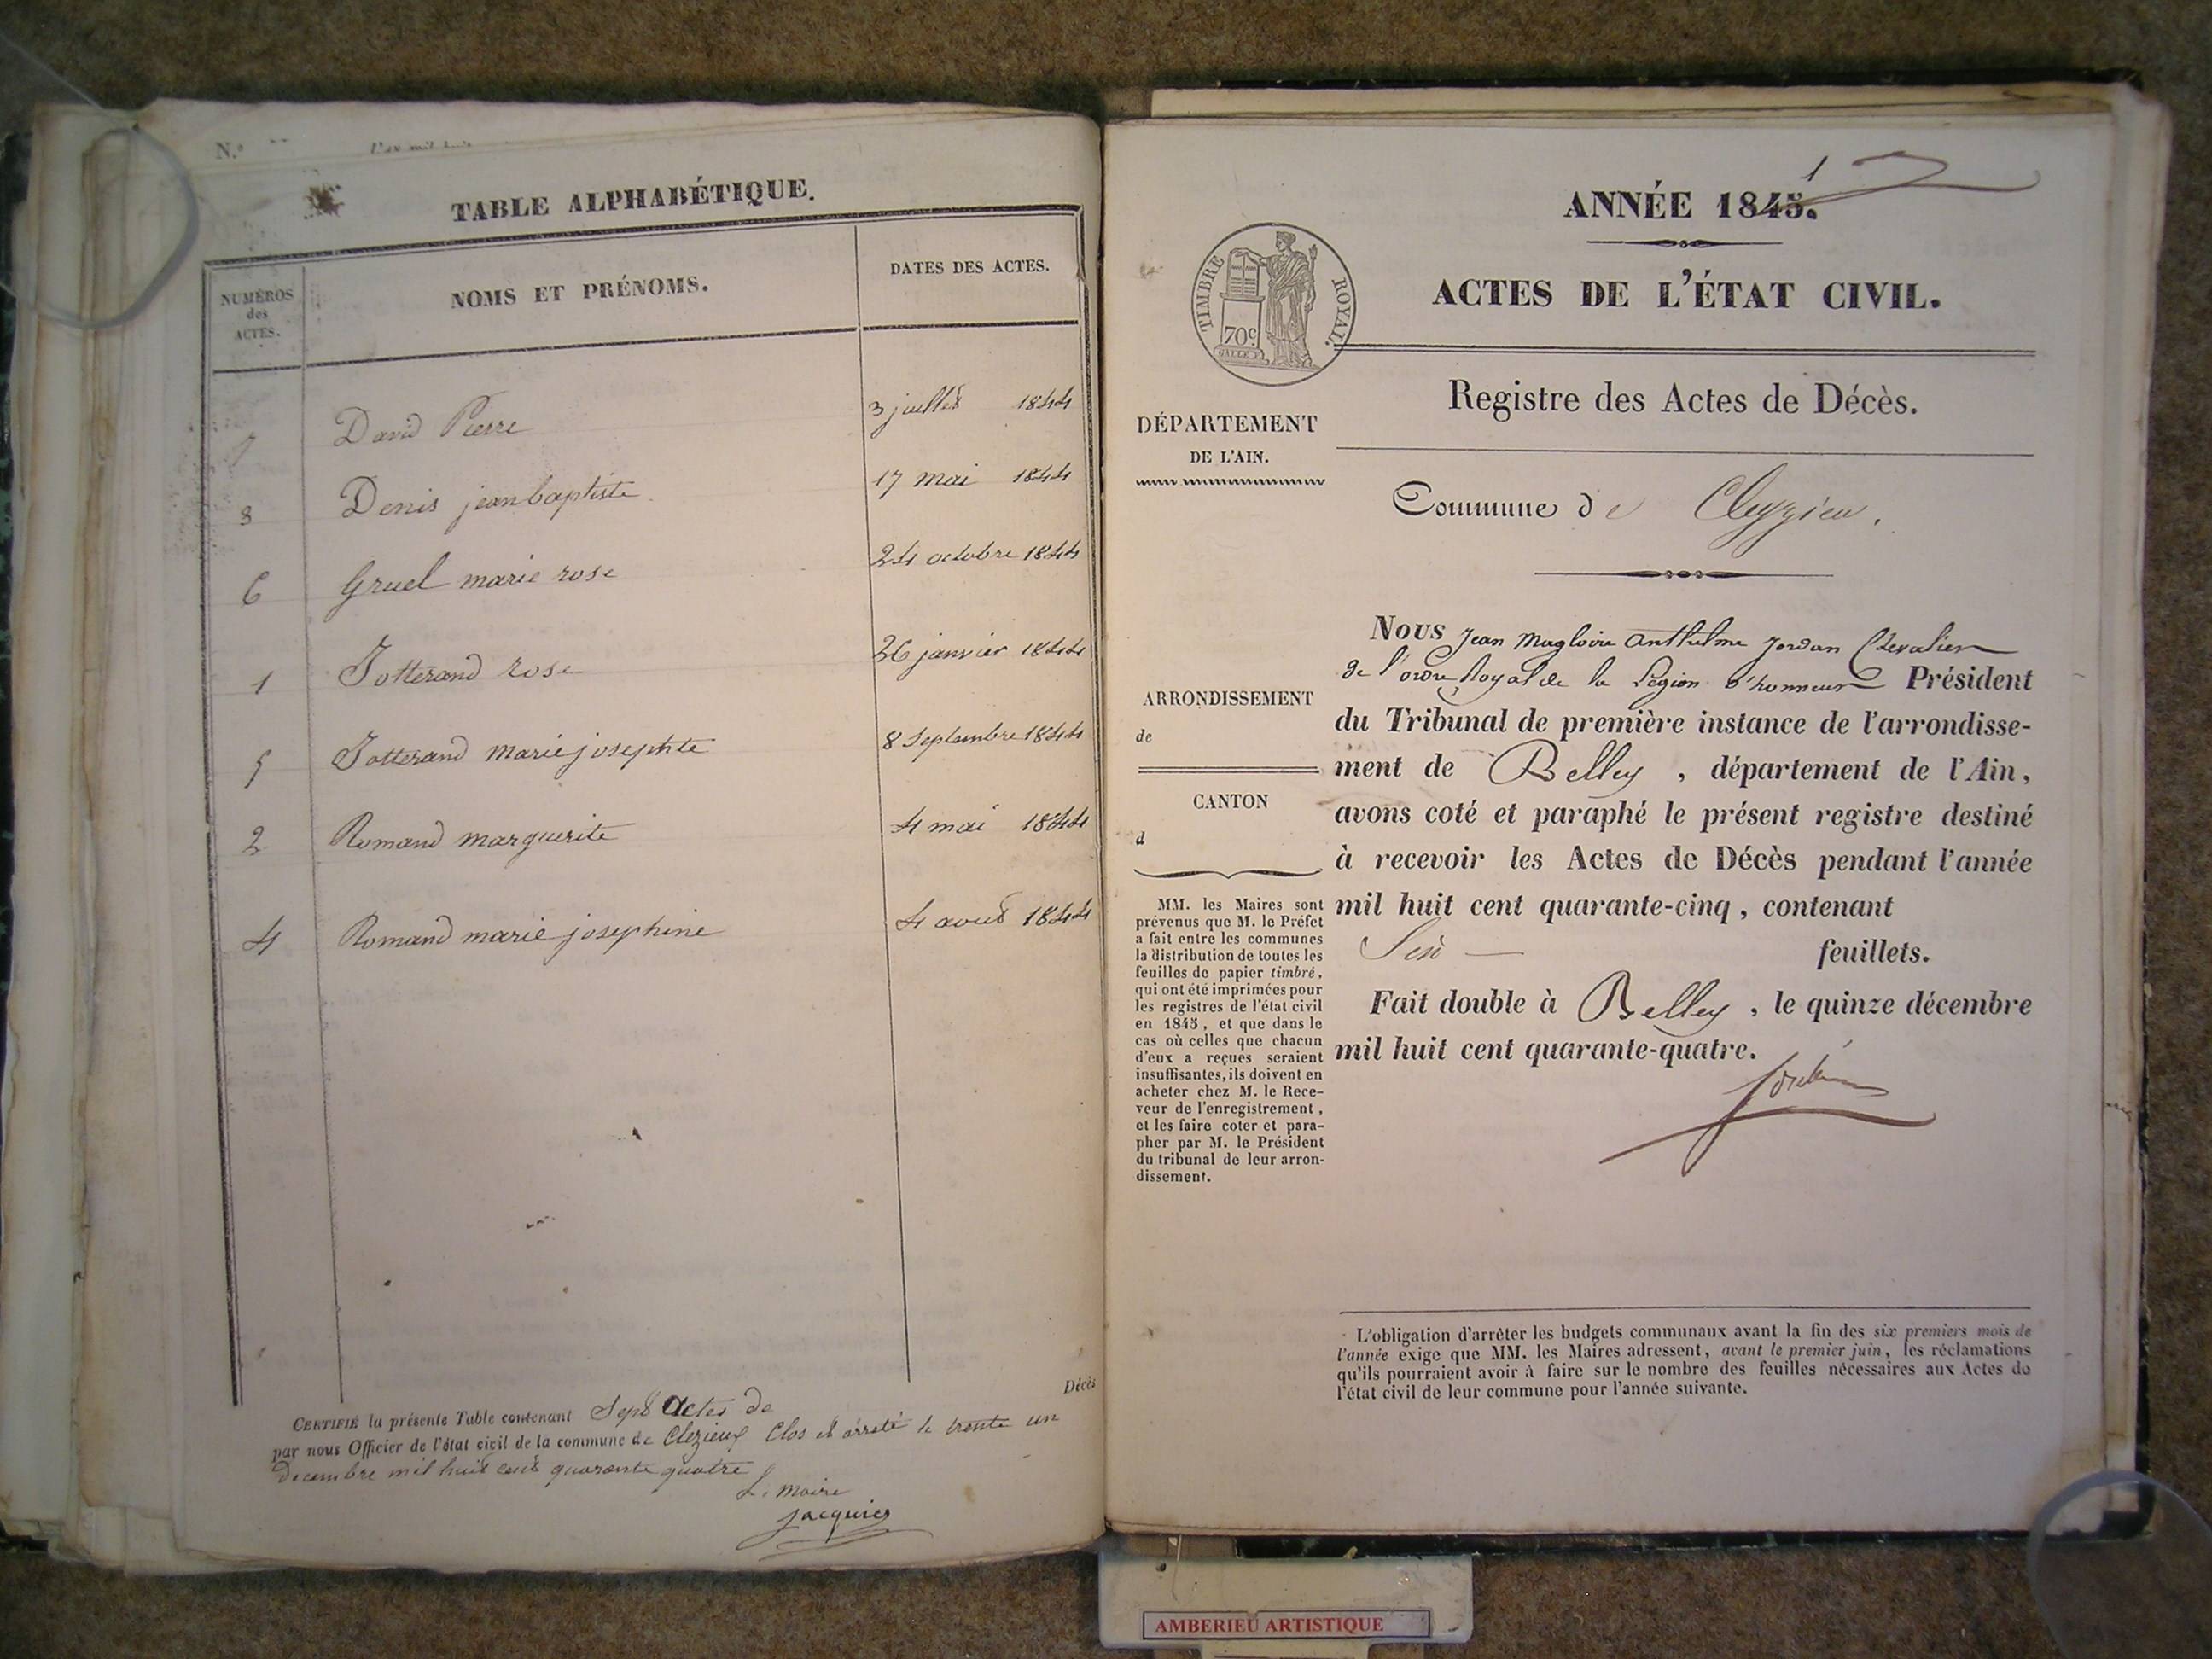 N.º
TABLE ALPHABÉTIQUE.
NUMÉROS des ACTES.
NOMS ET PRÉNOMS.
DATES DES ACTES.
7 David Pierre 3 juillet 1844
3 Denis jean baptiste 17 mai 1844
6 Gruel marie rose 24 octobre 1844
1 Jotterand rose 26 janvier 1844
5 Jotterand marie josephte 8 Septembre 1844
2 Romand marguerite 4 mai 1844
4 Romand marie josephine 4 aout 1844
Décès
CERTIFIÉ la présente Table contenant Sept Actes de
par nous Officier de l'état civil de la commune de Clezieux Clos et arreté le trente un
decembre mil huit cent quarante quatre
L. maire
jacquier
1
ANNÉE 1845.
ACTES DE L'ÉTAT CIVIL.
TIMBRE ROYAL.
70c
Registre des Actes de Décès.
DÉPARTEMENT
DE L'AIN.
Commune de Cleyzieu.
ARRONDISSEMENT
de
CANTON
d
MM. les Maires sont
prévenus que M. le Préfet
a fait entre les communes
la distribution de toutes les
feuilles de papier timbré,
qui ont été imprimées pour
les registres de l'état civil
en 1845, et que dans le
cas où celles que chacun
d'eux a reçues seraient
insuffisantes, ils doivent en
acheter chez M. le Rece-
veur de l'enregistrement,
et les faire coter et para-
pher par M. le Président
du tribunal de leur arron-
dissement.
Nous Jean Magloire Anthelme Jordan Chevalier
de l'ordre Royal de la Légion d'honneur Président
du Tribunal de première instance de l'arrondisse-
ment de Belley, département de l'Ain,
avons coté et paraphé le présent registre destiné
à recevoir les Actes de Décès pendant l'année
mil huit cent quarante-cinq, contenant
feuillets.
Fait double à Belley, le quinze décembre
mil huit cent quarante-quatre.
Jordan
L'obligation d'arrêter les budgets communaux avant la fin des six premiers mois de
l'année exige que MM. les Maires adressent, avant le premier juin, les réclamations
qu'ils pourraient avoir à faire sur le nombre des feuilles nécessaires aux Actes de
l'état civil de leur commune pour l'année suivante.
AMBERIEU ARTISTIQUE